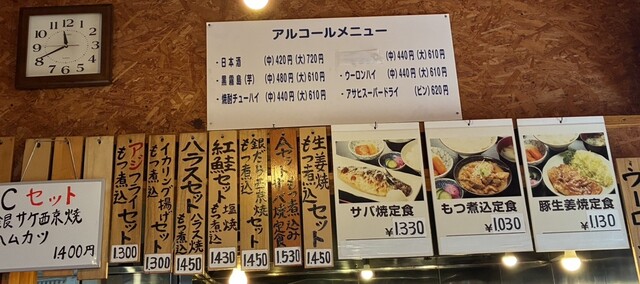 アルコールメニュー
・日本酒 (中)420円(大)720円
・黒霧島(芋) (中)480円(大)610円
・焼酎チューハイ (中)440円(大)610円
(中)440円(大)610円
・ウーロンハイ (中)440円(大)610円
・アサヒスーパードライ (ビン)620円
Cセット
銀サケ西京焼
ハムカツ
1400円
アジフライセット
もつ煮込
1300
イカリング揚げセット
もつ煮込
1300
ハラスセット
ハラス焼
もつ煮込
1450
紅鮭セット
塩焼
もつ煮込
1430
銀だら西京焼セット
もつ煮込
1450
1,530
生姜焼セット
もつ煮込
1450
サバ焼定食
¥1330
もつ煮込定食
¥1,030
豚生姜焼定食
¥1,130